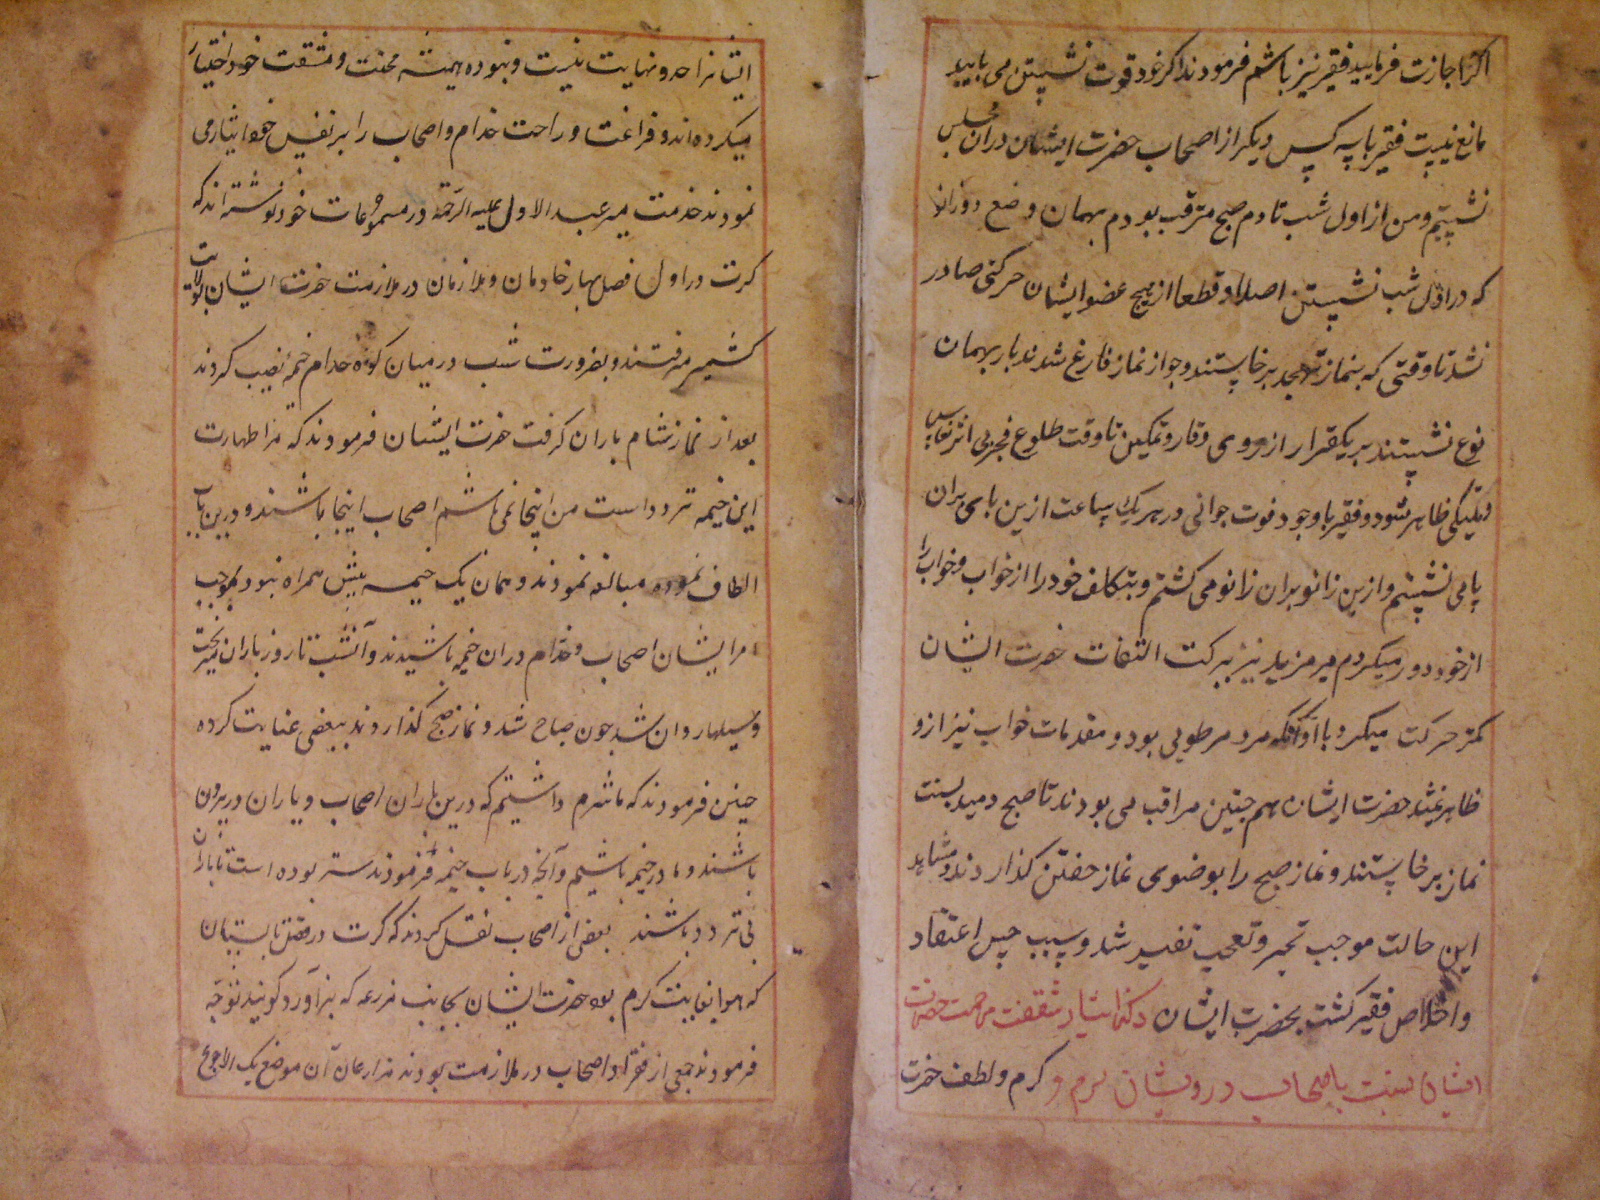 اگر اجازت فرمایید فقیر نیز باشم فرمودند اگر خود قوت نشستن می یابید
مانع نیست فقیر با سه کس دیگر از اصحاب حضرت ایشان دران مجلس
نشستیم و من از اول شب تا دم صبح مترقب بودم بهمان وضع دو زانو
که در اول شب نشستن اصلا و قطعا از هیچ عضو ایشان حرکتی صادر
نشد تا وقتی که بنماز تهجد برخاستند و چو از نماز فارغ شدند باز بهمان
نوع نشستند بر یکقرار از روی وقار و تمکین تا وقت طلوع فجر بی اثر نعاس
ظاهر شود و فقیر با وجود قوت جوانی در هر یک ساعت ازین پای بران
پامی نشستم و ازین زانو بران زانو می کشتم و بتکلف خود را از خواب و خواب را
از خود دور میکردم میر مزید نیز ببرکت التفات حضرت ایشان
کمتر حرکت میکرد با آنکه مرد مرطوبی بود و مقدمات خواب نیز ازو
ظاهر نشد حضرت ایشان هم چنین مراقب می بودند تا صبح دمید بسنت
نماز برخاستند و نماز صبح را بوضوی نماز خفتن کذاردند و مشاهده
این حالت موجب تحیر و تعجب تفسیر شد و سبب حسن اعتقاد
و اخلاص فقیر کشت بحضرت ایشان ذکر ایثار و شفقت و مرحمت حضرت
ایشان نسبت باصحاب و درویشان کرم و کرم و لطف حضرت
ایشانرا حد و نهایت نیست و نبوده همیشه محنت و مشقت خود اختیار
میکرده اند و فراغت و راحت خدام و اصحاب را بر نفس خود ایثار می
نمودند خدمت میر عبد الاول علیه الرحمة در مسموعات خود نوشته اند که
کرت در اول فصل بهار خادمان و ملازمان در ملازمت حضرت ایشان بولایت
کش میرفتند و بضرورت شب در میان کوه خدام خیمه نصیب کردند
بعد از نماز شام باران کرفت حضرت ایشان فرمودند که مرا طهارت
این خیمه تردد است من اینجا نمی باشم اصحاب اینجا باشند و درین باب
الطاف نموده مبالغه نمودند و همان یک خیمه بیش همراه نبود بموجب
امر ایشان اصحاب و خدام دران خیمه باشیدند و آنشب تا روز باران میریخت
و سیلها روان شد چون صباح شد و نماز صبح کذاردند ببعضی عنایت کرده
چنین فرمودند که ما شرم داشتیم که درین باران اصحاب و یاران در بیرون
باشند و ما در خیمه باشیم و آنچه در باب خیمه فرمودند ستر بوده است تا یاران
بی تردد باشند بعضی از اصحاب نقل کردند که کرت در فصل تابستان
که هوا بغایت کرم بود حضرت ایشان بجانب مزرعه که بر آورد کویند توجه
فرمودند جمعی از فقرا و اصحاب در ملازمت بودند مزارعان آن موضع یک الاجوغ